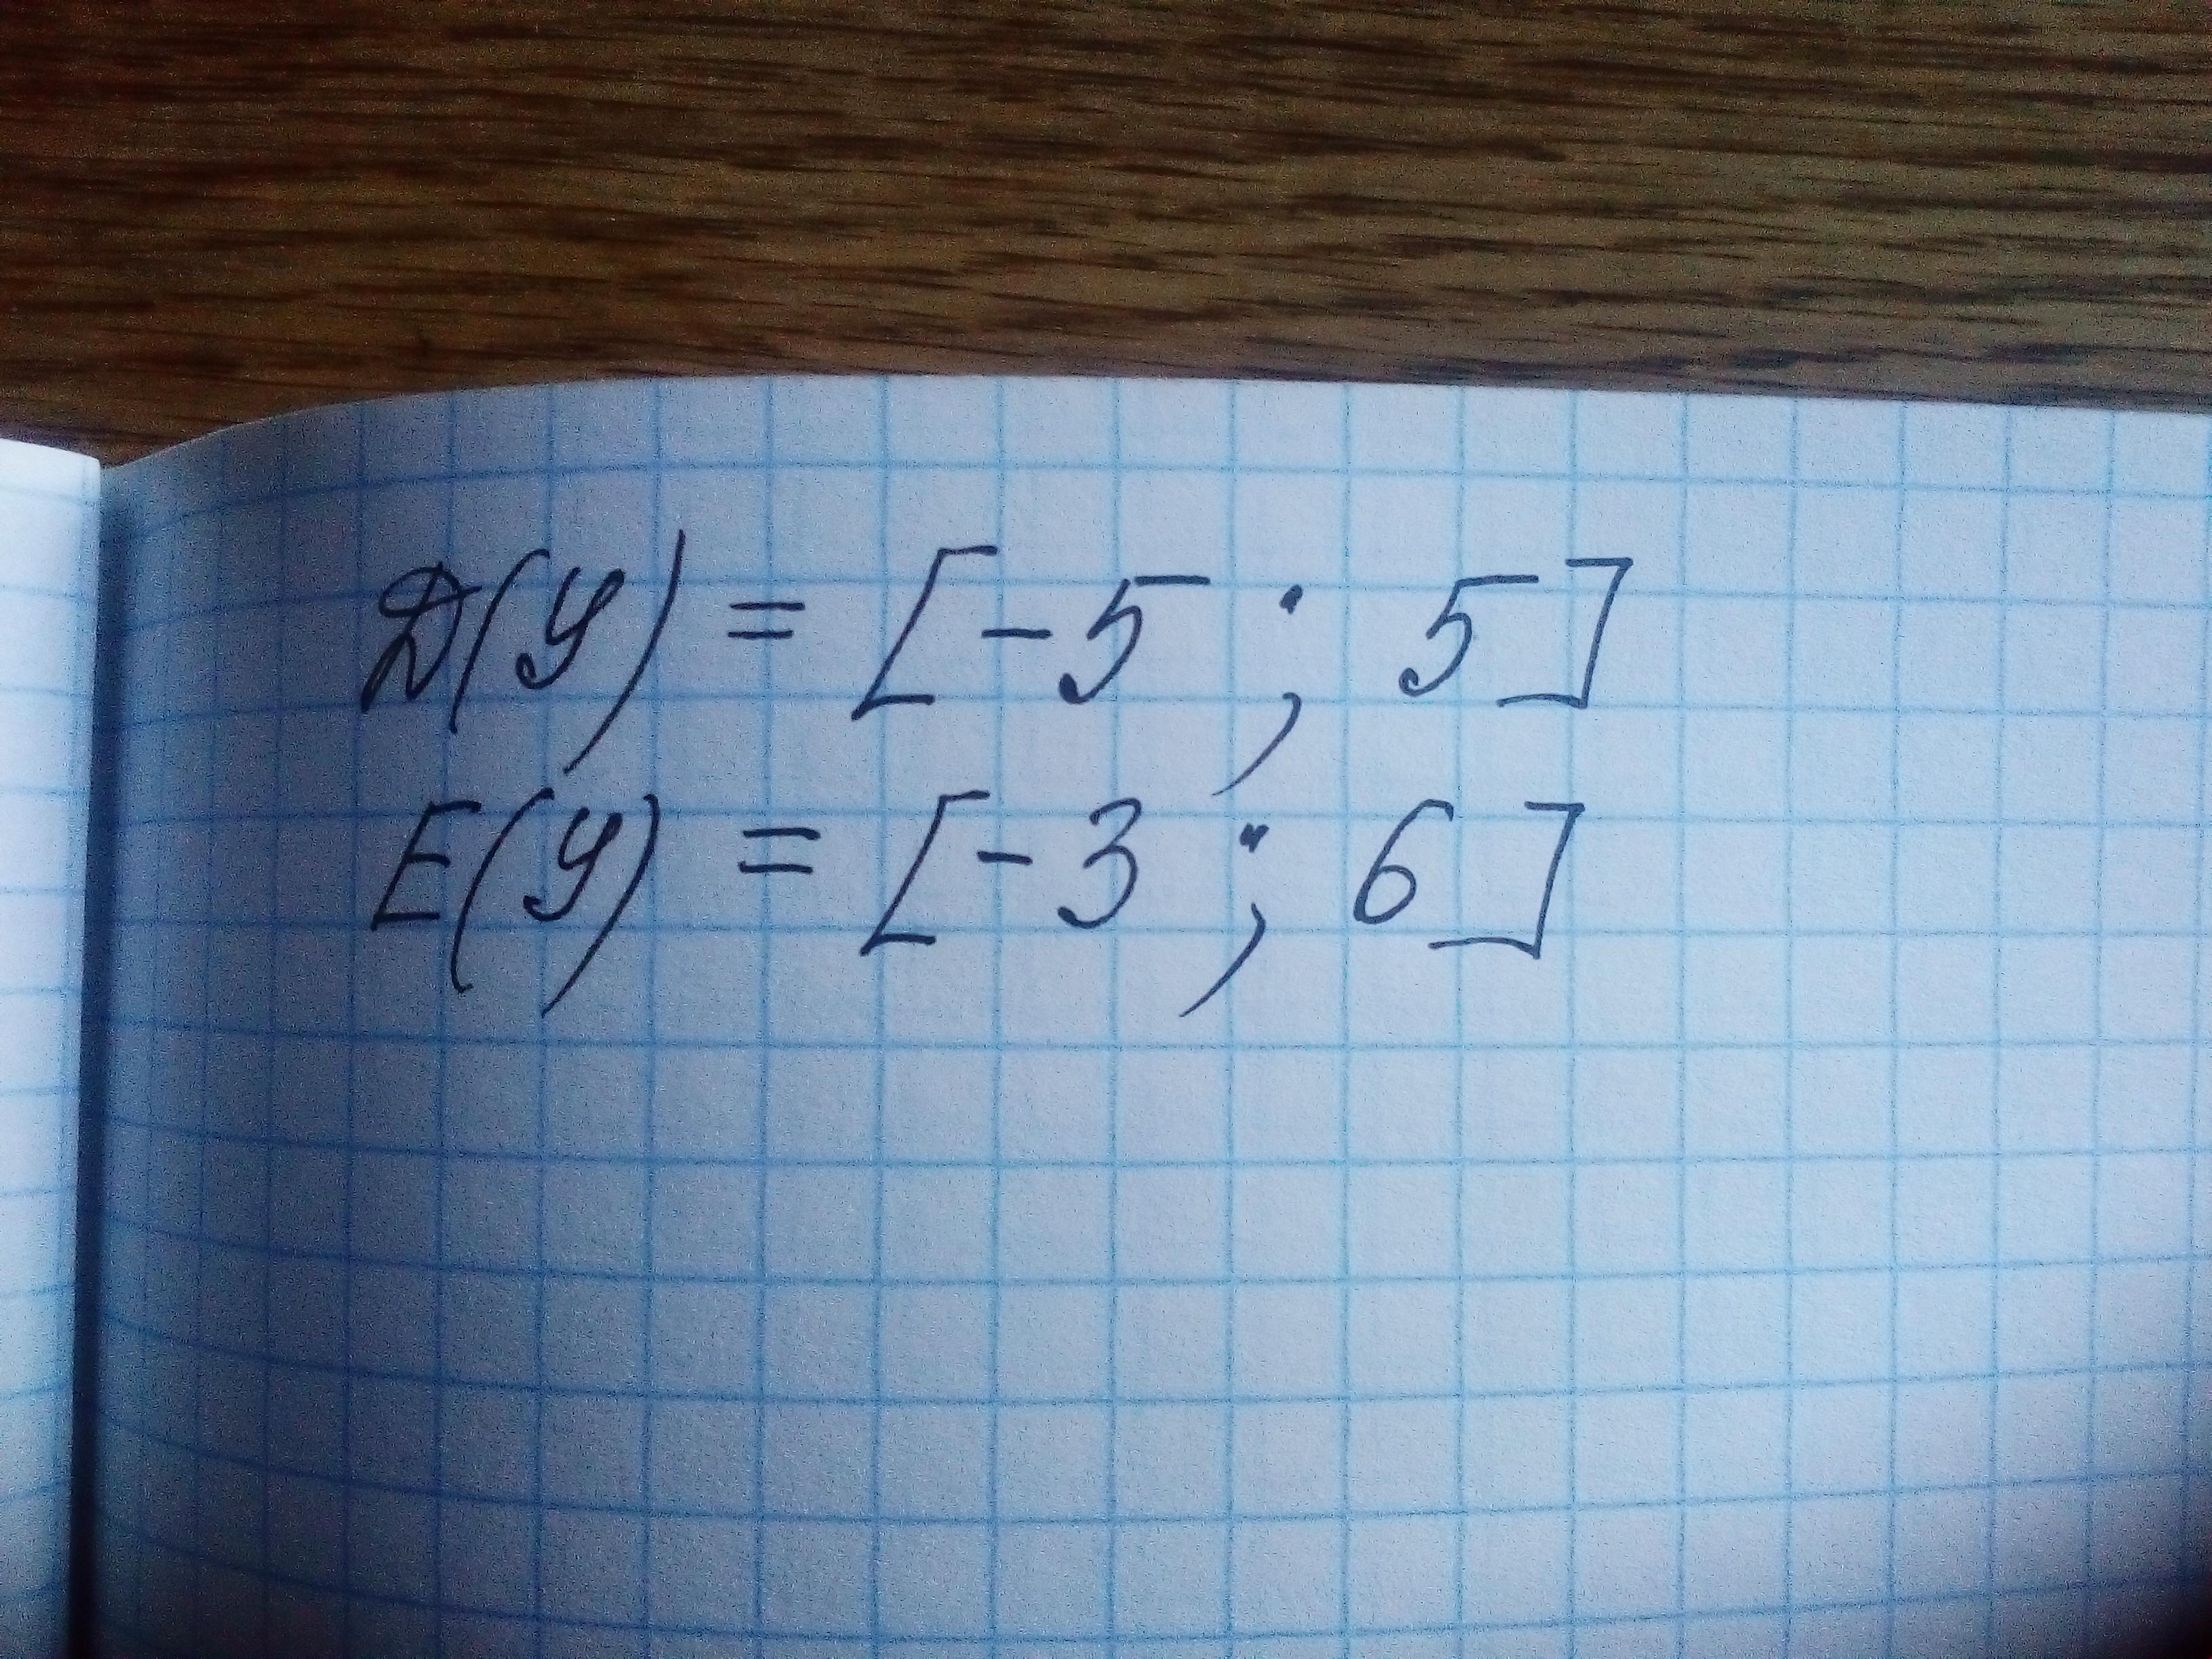 D(y) = [-5 ; 5]
E(y) = [-3 ; 6]